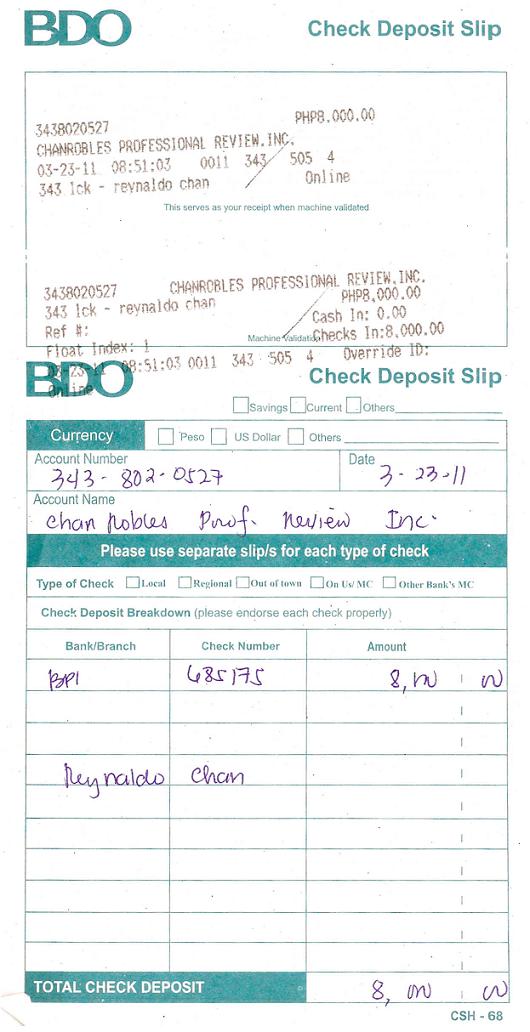 BDO Check Deposit Slip
3438020527 PHP8,000.00
CHANROBLES PROFESSIONAL REVIEW,INC.
03-23-11 08:51:03 0011 343 505 4
343 lck - reynaldo chan Online
This serves as your receipt when machine validated
3438020527 CHANROBLES PROFESSIONAL REVIEW,INC.
343 lck - reynaldo chan PHP8,000.00
Ref #: Cash In: 0.00
Machine Validation Checks In:8,000.00
Float Index: 1 Override ID:
03-23-11 08:51:03 0011 343 505 4
Online
BDO Check Deposit Slip
Savings Current Others
Currency Peso US Dollar Others
Account Number Date
343-802-0527 3-23-11
Account Name
Chan Robles Prof. Review Inc.
Please use separate slip/s for each type of check
Type of Check Local Regional Out of town On Us/ MC Other Bank's MC
Check Deposit Breakdown (please endorse each check properly)
Bank/Branch Check Number Amount
BPI 685175 8,000 00
Reynaldo Chan
TOTAL CHECK DEPOSIT 8,000 00
CSH - 68